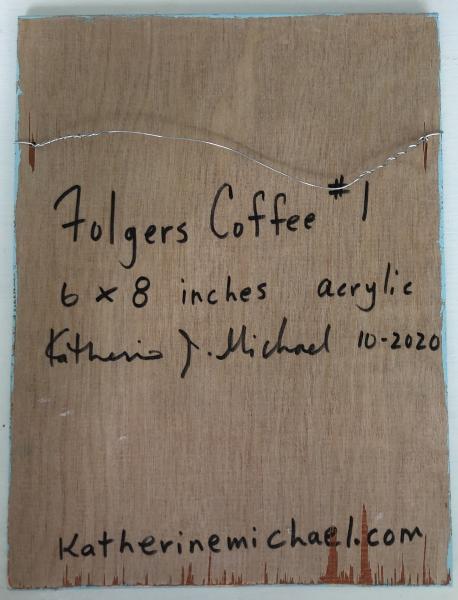 Folgers Coffee #1
6 x 8 inches acrylic
Katherine J. Michael 10-2020
Katherinemichael.com